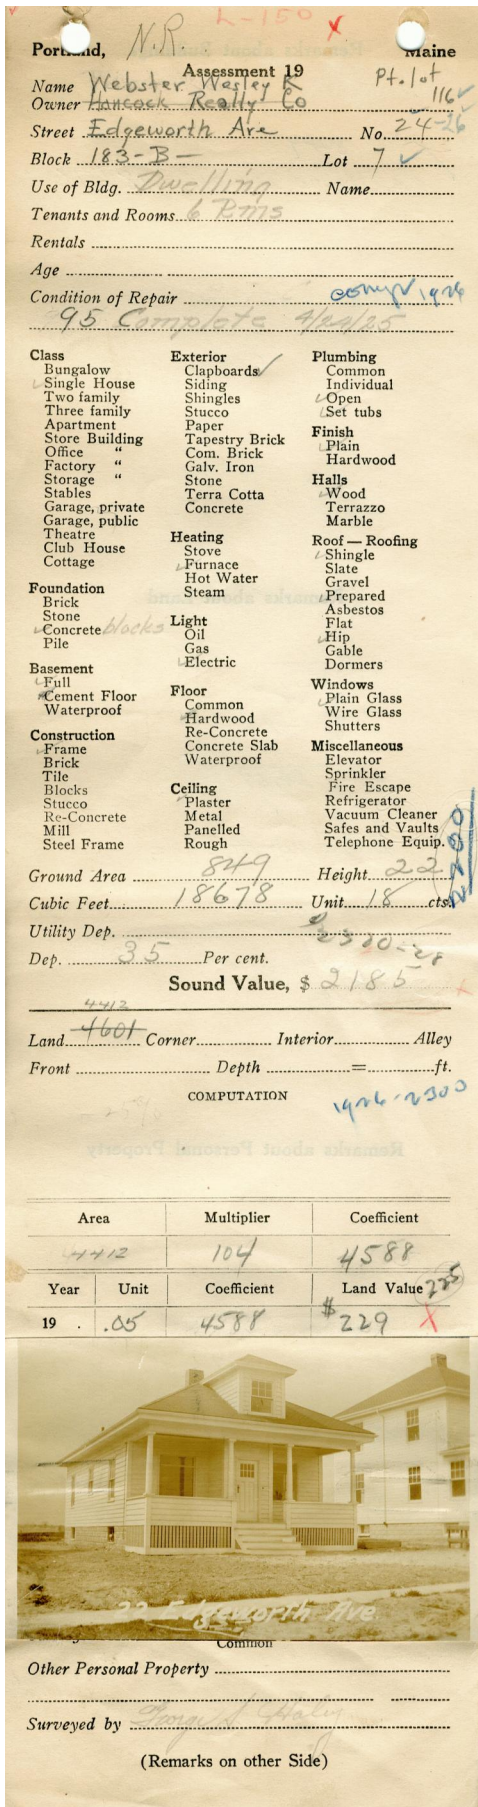 L-150 x
Portland, N.R. Maine
Assessment 19
Pt. lot
Name Webster Wesley R 116
Owner Hancock Realty Co
Street Edgeworth Ave No. 24-26
Block 183-B- Lot 7
Use of Bldg. Dwelling Name
Tenants and Rooms 6 Rms
Rentals
Age
Condition of Repair comp 1926
95 Complete 4/24/25
Class
Bungalow
Single House
Two family
Three family
Apartment
Store Building
Office "
Factory "
Storage "
Stables
Garage, private
Garage, public
Theatre
Club House
Cottage
Foundation
Brick
Stone
Concrete blocks
Pile
Basement
Full
Cement Floor
Waterproof
Construction
Frame
Brick
Tile
Blocks
Stucco
Re-Concrete
Mill
Steel Frame
Exterior
Clapboards
Siding
Shingles
Stucco
Paper
Tapestry Brick
Com. Brick
Galv. Iron
Stone
Terra Cotta
Concrete
Heating
Stove
Furnace
Hot Water
Steam
Light
Oil
Gas
Electric
Floor
Common
Hardwood
Re-Concrete
Concrete Slab
Waterproof
Ceiling
Plaster
Metal
Panelled
Rough
Plumbing
Common
Individual
Open
Set tubs
Finish
Plain
Hardwood
Halls
Wood
Terrazzo
Marble
Roof — Roofing
Shingle
Slate
Gravel
Prepared
Asbestos
Flat
Hip
Gable
Dormers
Windows
Plain Glass
Wire Glass
Shutters
Miscellaneous
Elevator
Sprinkler
Fire Escape
Refrigerator
Vacuum Cleaner
Safes and Vaults
Telephone Equip.
Ground Area 849 Height 22
Cubic Feet 18678 Unit 18 cts.
Utility Dep.
Dep. 35 Per cent.
Sound Value, $ 2185 x
4412
Land 4601 Corner Interior Alley
Front Depth = ft.
COMPUTATION
1926-2300
Area Multiplier Coefficient
4412 104 4588
Year Unit Coefficient Land Value 225
19 . .05 4588 $229 X
22 Edgeworth Ave.
Common
Other Personal Property
Surveyed by
(Remarks on other Side)